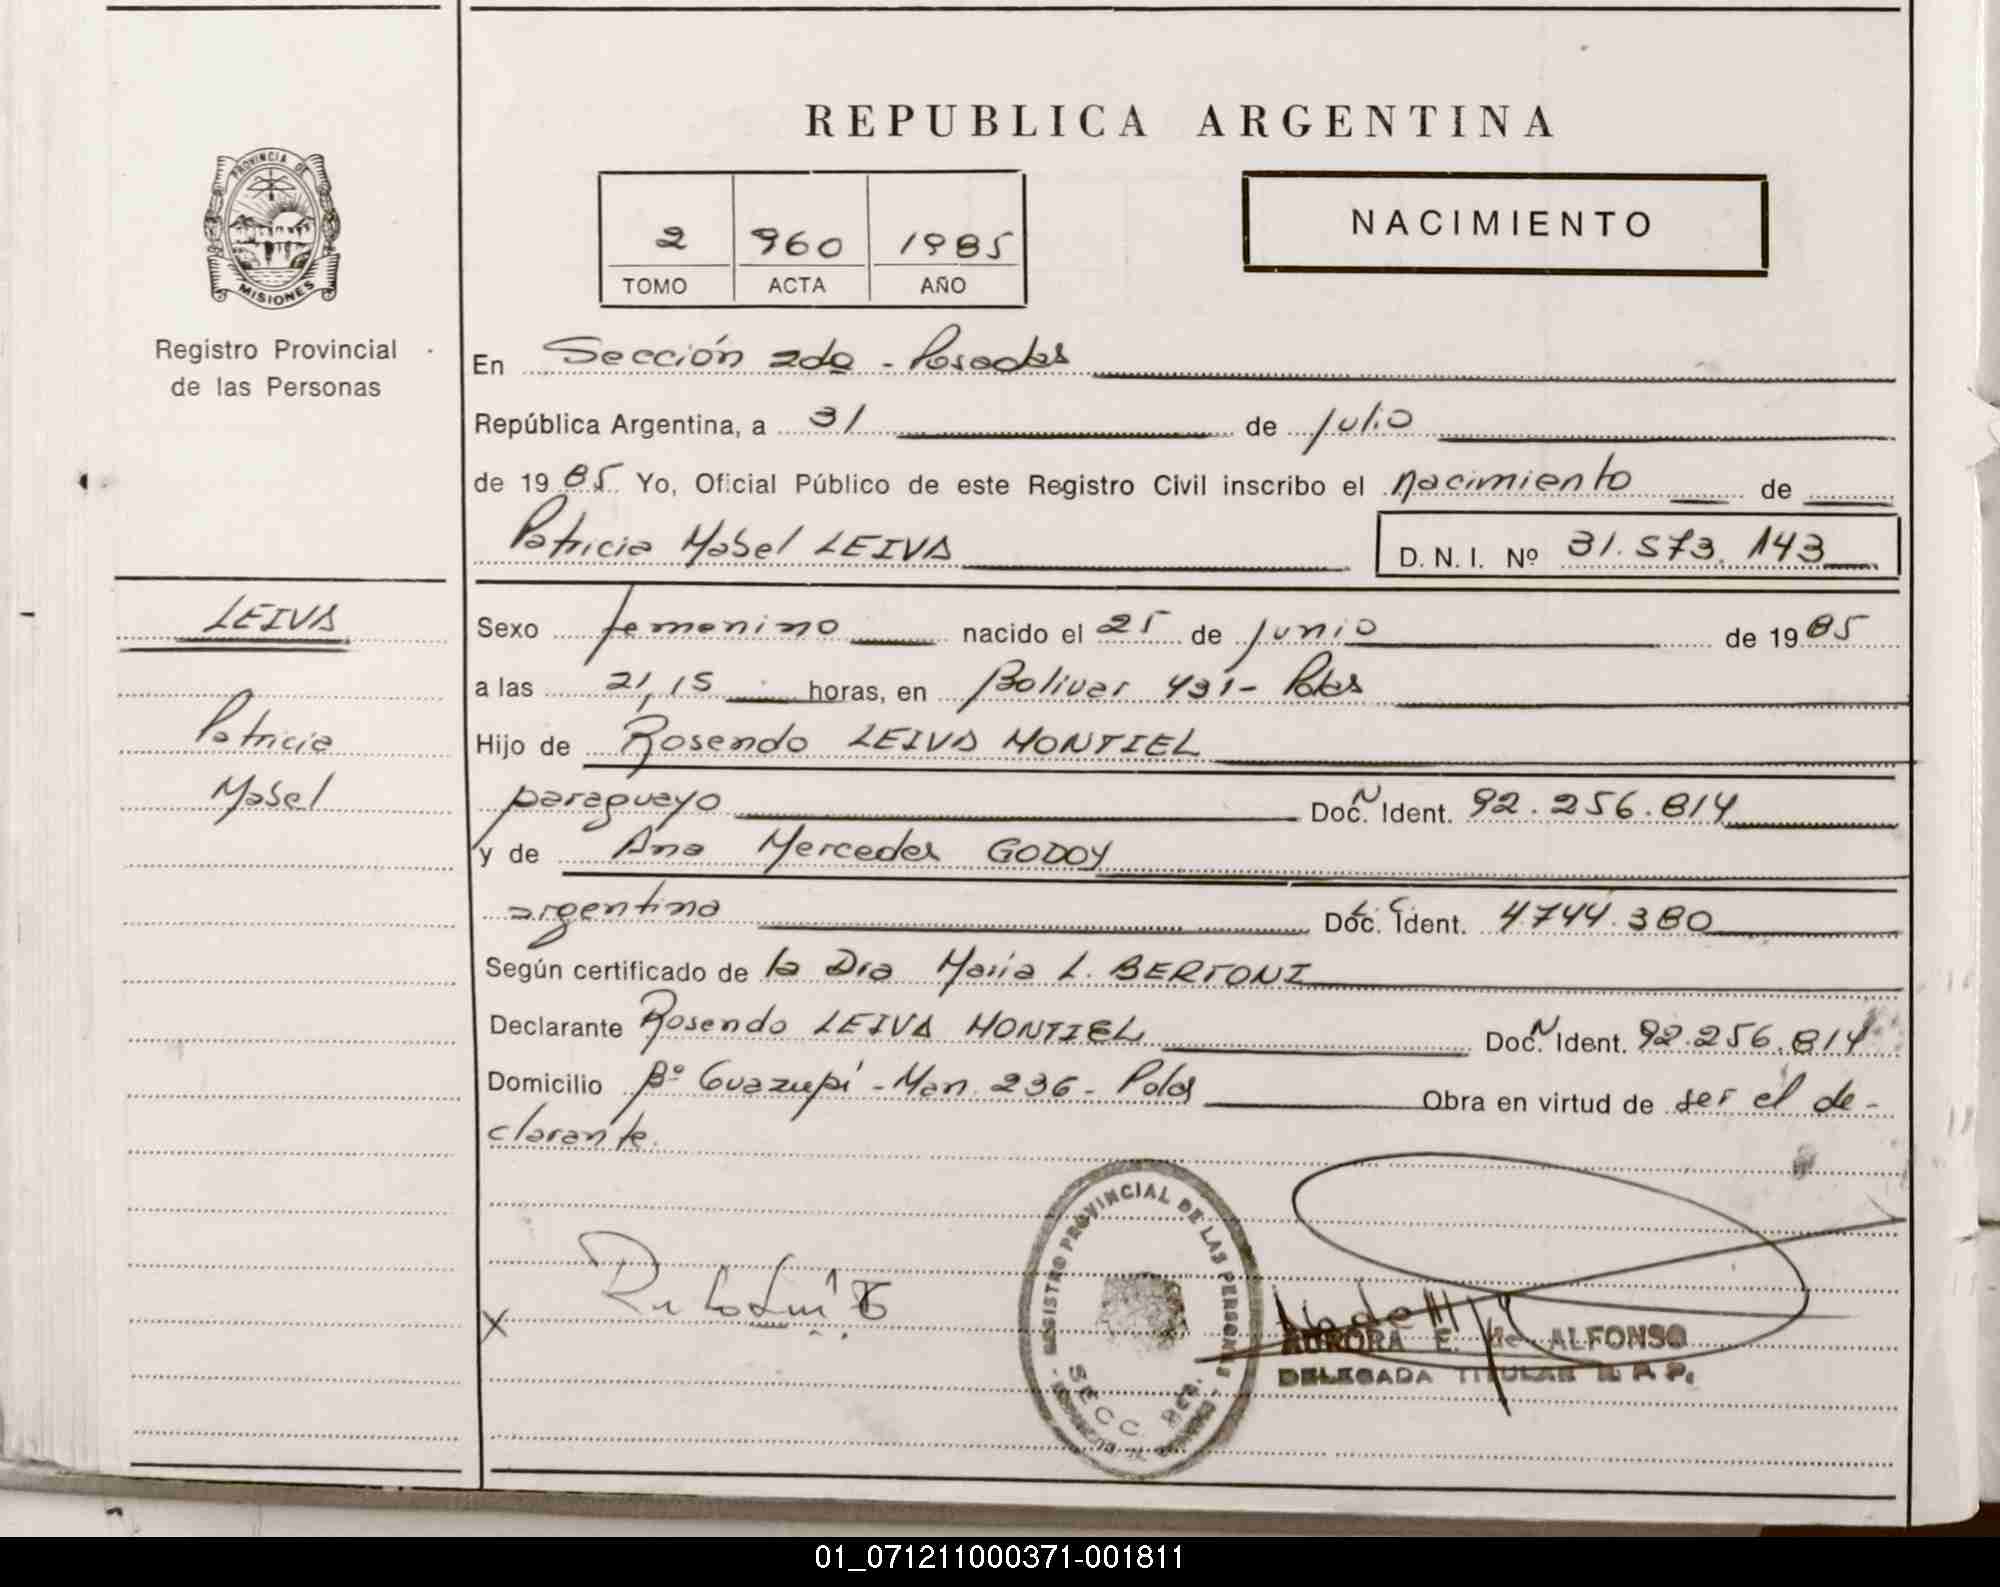 REPUBLICA ARGENTINA
PROVINCIA DE
MISIONES
Registro Provincial
de las Personas
2 960 1985
TOMO ACTA AÑO
NACIMIENTO
En Sección 2da - Posadas
República Argentina, a 31 de Julio
de 1985 Yo, Oficial Público de este Registro Civil inscribo el nacimiento de
Patricia Mabel LEIVA D.N.I. Nº 31.573.143
LEIVA
Patricia
Mabel
Sexo femenino nacido el 25 de Junio de 1985
a las 21,15 horas, en Bolivar 431 - Pdas
Hijo de Rosendo LEIVA MONTIEL
paraguayo Doc. Ident. 92.256.814
y de Ana Mercedes GODOY
argentina Doc. Ident. L.C. 4.744.380
Según certificado de la Dra María L. BERTONI
Declarante Rosendo LEIVA MONTIEL Doc. Ident. 92.256.814
Domicilio Bº Guazupí - Man. 236 - Pdas Obra en virtud de ser el de-
clarante.
REGISTRO PROVINCIAL DE LAS PERSONAS
SECC 2da.
X
AURORA E. de ALFONSO
DELEGADA TITULAR R. P. P.
01_071211000371-001811